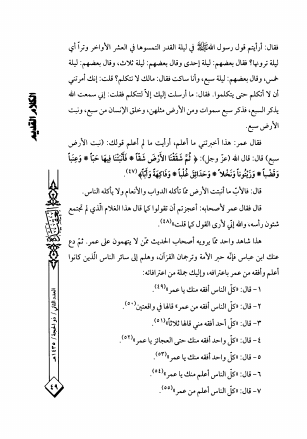 فقال: أرأيتم قول رسول الله ﷺ في ليلة القدر التمسوها في العشر الأواخر وتراً أي
ليلة ترونها؟ فقال بعضهم: ليلة إحدى وقال بعضهم: ليلة ثلاث، وقال بعضهم: ليلة
خمس، وقال بعضهم: ليلة سبع، وأنا ساكت فقال: مالك لا تتكلم؟ قلت: إنك أمرتني
أن لا أتكلم حتى يتكلموا. فقال: ما أرسلت إليك إلاّ لتتكلم فقلت: إني سمعت الله
يذكر السبع، فذكر سبع سموات ومن الأرض مثلهن، وخلق الإنسان من سبع، ونبت
الأرض سبع.
فقال عمر: هذا أخبرتني ما أعلم، أرأيت ما لم أعلم قولك: (نبت الأرض
سبع) قال: قال الله (عزّ وجل): ﴿ثُمَّ شَقَقْنَا الأَرْضَ شَقّاً * فَأَنْبَتْنَا فِيهَا حَبّاً * وَعِنَباً
وَقَضْباً * وَزَيْتُوناً وَنَخْلاً * وَحَدَائِقَ غُلْباً * وَفَاكِهَةً وَأَبّاً﴾(٤٧).
قال: فالأبّ ما أنبتت الأرض ممّا تأكله الدواب والأنعام ولا يأكله الناس.
فقال عمر لأصحابه: أعجزتم أن تقولوا كما قال هذا الغلام الّذي لم تجتمع
شئون رأسه، والله إني لأرى القول كما قلت»(٤٨).
هذا شاهد واحد ممّا يرويه أصحاب الحديث ممّن لا يتهمون على عمر. ثمّ دع
عنك ابن عباس فإنّه حبر الأمة وترجمان القرآن، وهلم إلى سائر الناس الّذين كانوا
أعلم وأفقه من عمر باعترافه، وإليك جملة من اعترافاته:
١ - قال: «كلّ الناس أفقه منك يا عمر»(٤٩).
٢ - قال: «كلّ الناس أفقه من عمر» قالها في واقعتين(٥٠).
٣ - قال: «كلّ أحد أفقه مني قالها ثلاثاً»(٥١).
٤ - قال: «كلّ واحد أفقه منك حتى العجائز يا عمر»(٥٢).
٥ - قال: «كلّ واحد أفقه منك يا عمر»(٥٣).
٦ - قال: «كلّ الناس أعلم منك يا عمر»(٥٤).
٧ - قال: «كلّ الناس أعلم من عمر»(٥٥).
٤٩